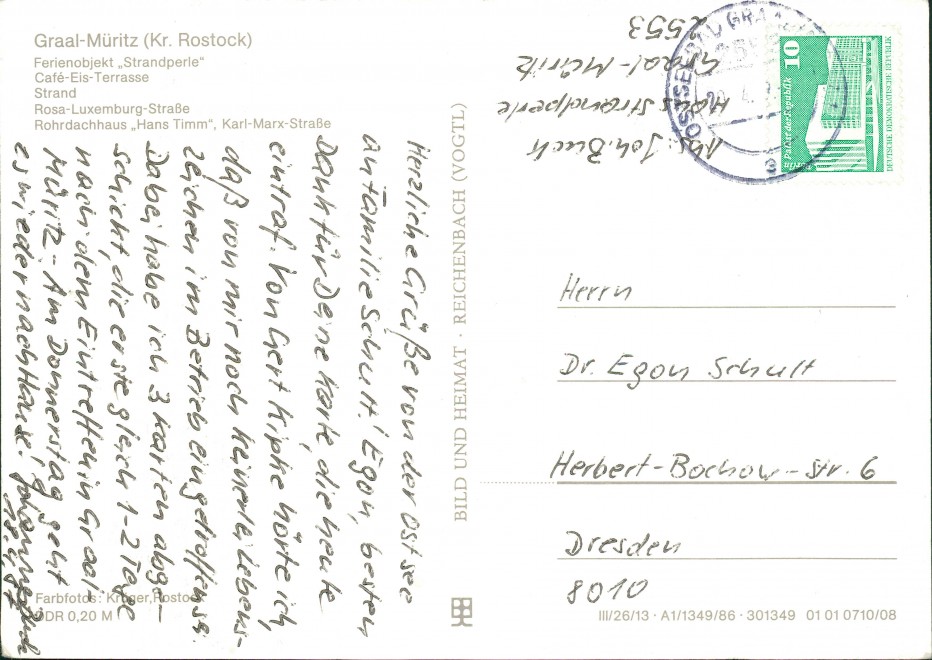 Graal-Müritz (Kr. Rostock)
Ferienobjekt „Strandperle“
Café-Eis-Terrasse
Strand
Rosa-Luxemburg-Straße
Rohrdachhaus „Hans Timm“, Karl-Marx-Straße
Herzliche Grüße von der Ostsee
an Familie Schult! Egon, besten
Dank für Deine Karte, die heute
eintraf. Von Gert Kipke hörte ich,
daß von mir noch keinerlei Lebens-
zeichen im Betrieb eingetroffen sei.
Dabei habe ich 3 Karten abge-
schickt, die erste gleich 1-2 Tage
nach dem Eintreffen in Graal-
Müritz - Am Donnerstag geht
es wieder nach Hause!
Farbfotos: Kröger, Rostock
DDR 0,20 M
BILD UND HEIMAT · REICHENBACH (VOGTL)
Abs: Joh. Buck
Haus Strandperle
Graal-Müritz
2553
OSTSEEBAD GRAAL
10
Palast der Republik
DEUTSCHE DEMOKRATISCHE REPUBLIK
Herrn
Dr. Egon Schult
Herbert-Bochow-Str. 6
Dresden
8010
III/26/13 · A1/1349/86 · 301349 01 01 0710/08